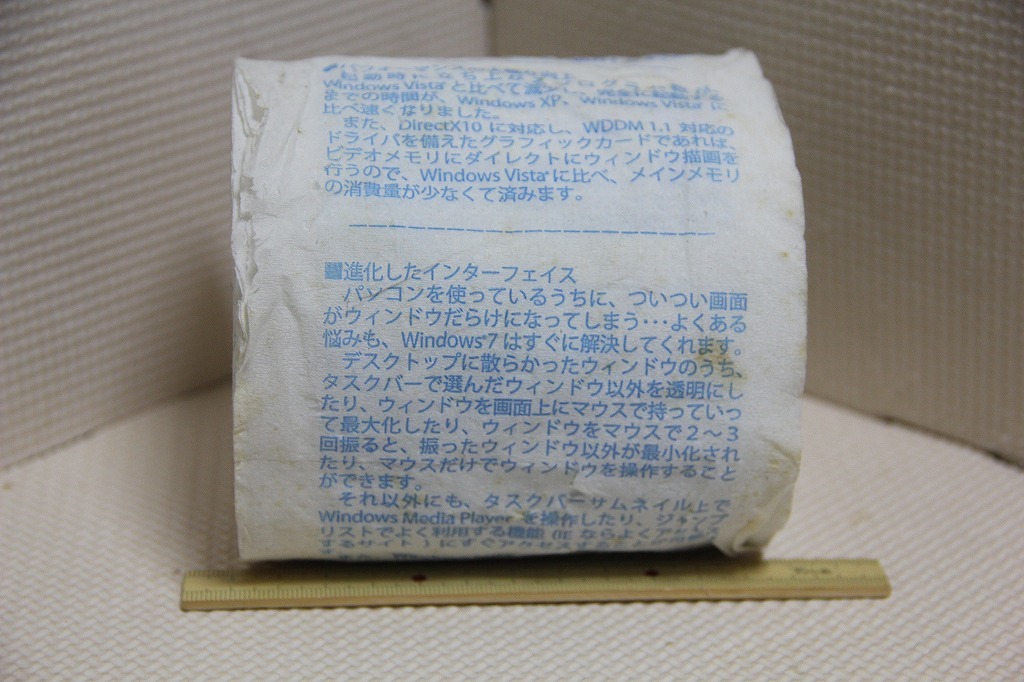 起動時に立ち上がる
Windows Vista®と比べて減少し、
までの時間が、Windows XP、Windows Vista®に
比べ速くなりました。
また、DirectX10 に対応し、WDDM 1.1 対応の
ドライバを備えたグラフィックカードであれば、
ビデオメモリにダイレクトにウィンドウ描画を
行うので、Windows Vista®に比べ、メインメモリ
の消費量が少なくて済みます。
進化したインターフェイス
パソコンを使っているうちに、ついつい画面
がウィンドウだらけになってしまう･･･よくある
悩みも、Windows®7 はすぐに解決してくれます。
デスクトップに散らかったウィンドウのうち、
タスクバーで選んだウィンドウ以外を透明にし
たり、ウィンドウを画面上にマウスで持っていっ
て最大化したり、ウィンドウをマウスで２～３
回振ると、振ったウィンドウ以外が最小化され
たり、マウスだけでウィンドウを操作すること
ができます。
それ以外にも、タスクバーサムネイル上で
Windows Media Player を操作したり、ジャンプ
リストでよく利用する機能（IE ならよくアクセス
するサイト）にすぐアクセスする